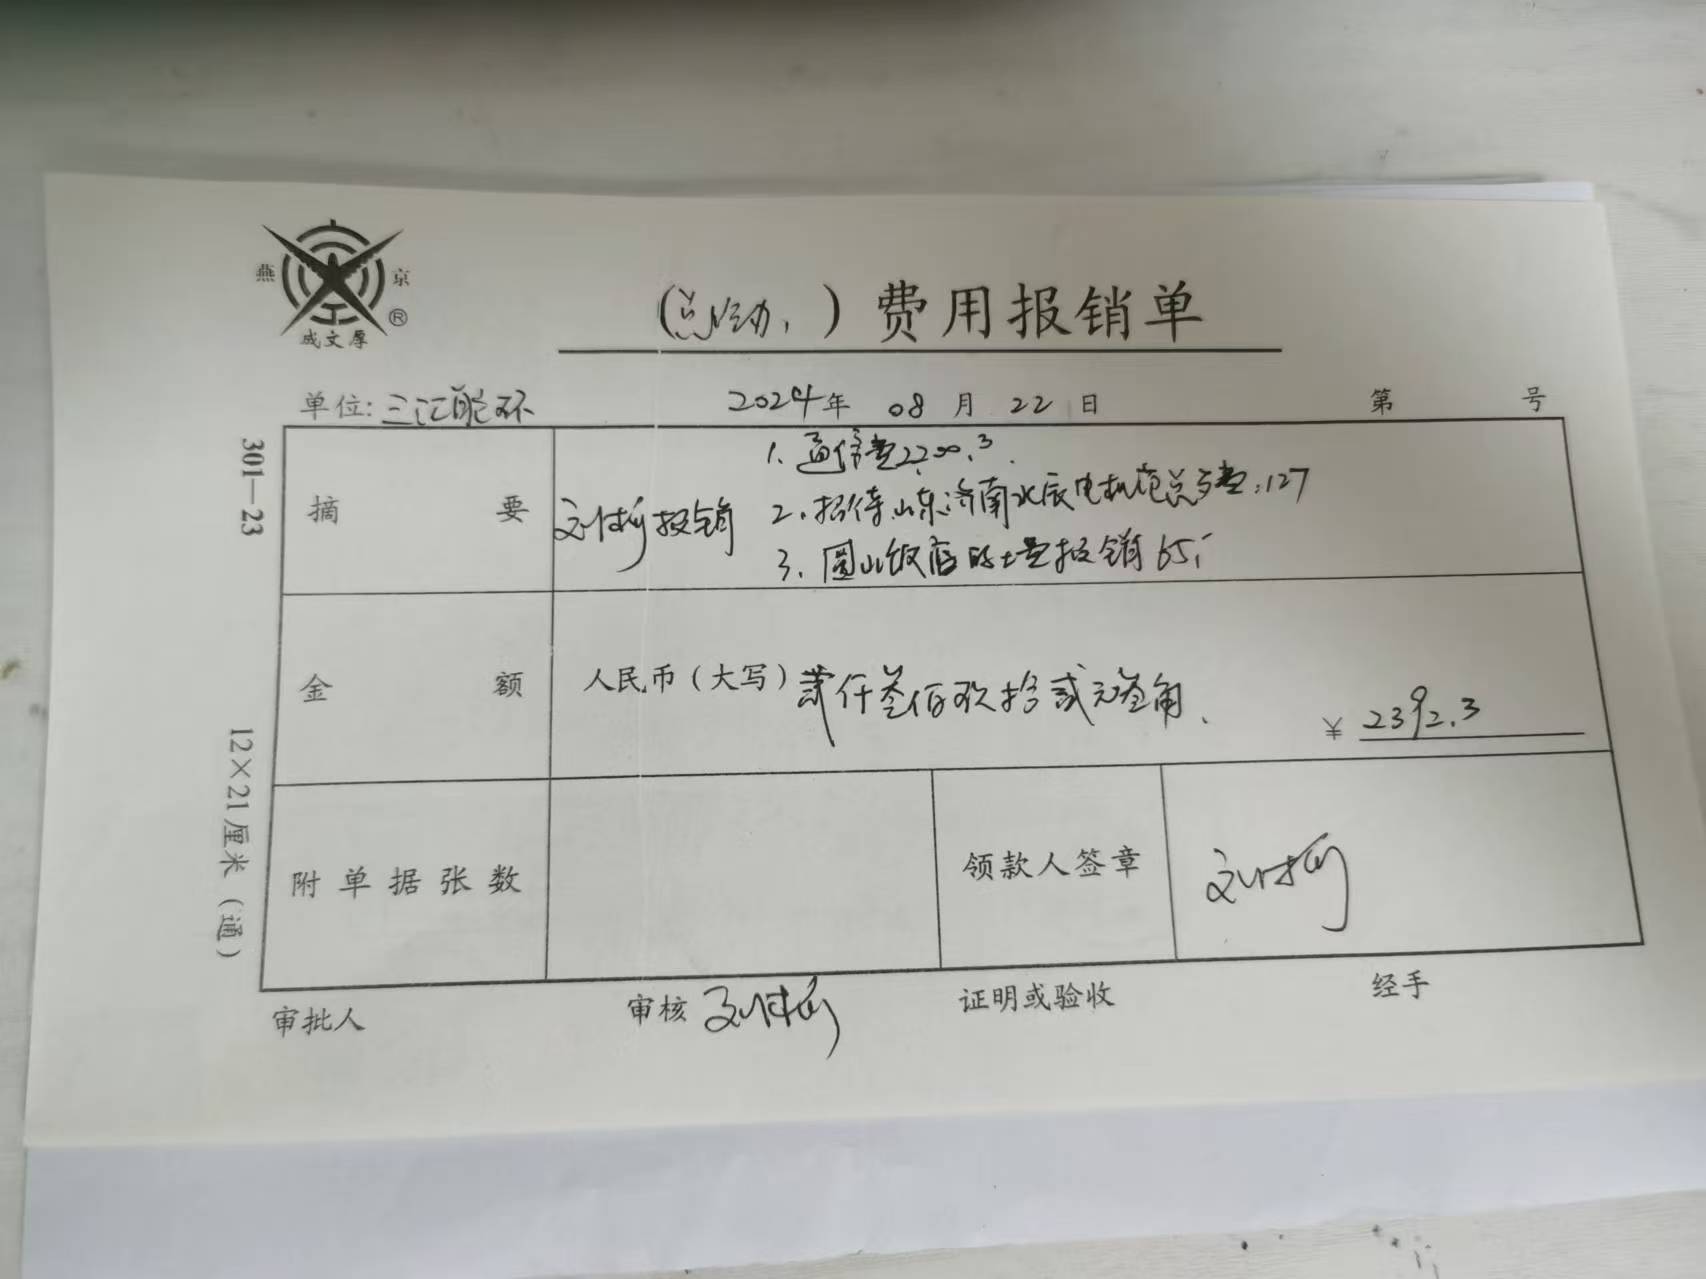 燕 京
®
成文厚
(总经办、) 费用报销单
单位: 三汇能环 2024年 08月 22日 第 号
301—23
12×21厘米(通)
摘 要
报销
1、通信费2200.3
2、招待山东济南水辰电机范总 费:127
3、圆山饭店的士费报销 65元
金 额 人民币(大写) 贰仟叁佰玖拾贰元叁角、 ¥ 2392.3
附单据张数 领款人签章
审批人 审核 证明或验收 经手